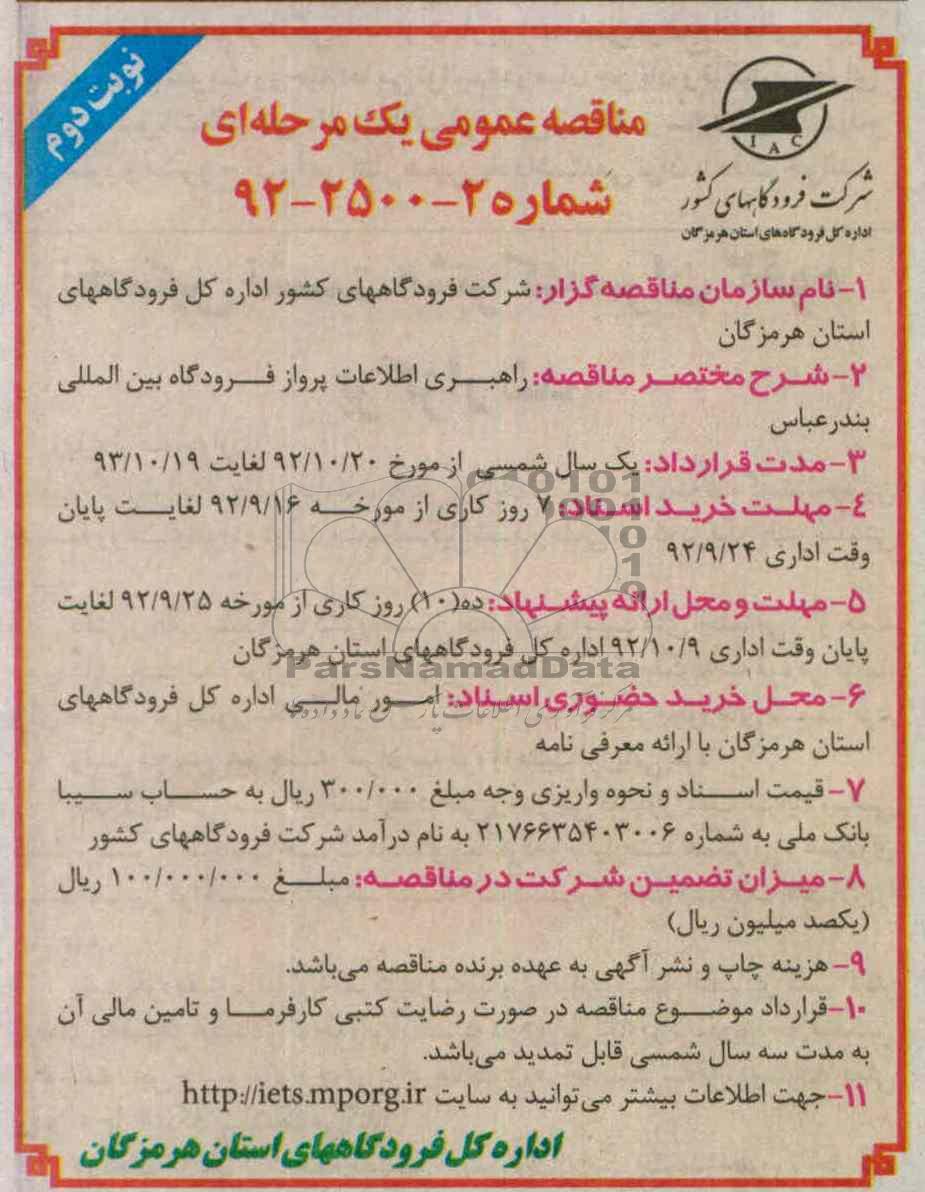 نوبت دوم
مناقصه عمومی یک مرحله‌ای
شماره ۲-۲۵۰۰-۹۲
IAC
شرکت فرودگاههای کشور
اداره کل فرودگاههای استان هرمزگان
۱-نام سازمان مناقصه گزار: شرکت فرودگاههای کشور اداره کل فرودگاههای
استان هرمزگان
۲-شرح مختصر مناقصه: راهبری اطلاعات پرواز فرودگاه بین المللی
بندرعباس
۳-مدت قرارداد: یک سال شمسی از مورخ ۹۲/۱۰/۲۰ لغایت ۹۳/۱۰/۱۹
۴-مهلت خرید اسناد: ۷ روز کاری از مورخه ۹۲/۹/۱۶ لغایت پایان
وقت اداری ۹۲/۹/۲۴
۵-مهلت و محل ارائه پیشنهاد: ده(۱۰) روز کاری از مورخه ۹۲/۹/۲۵ لغایت
پایان وقت اداری ۹۲/۱۰/۹ اداره کل فرودگاههای استان هرمزگان
ParsNamadData
۶-محل خرید حضوری اسناد: امور مالی اداره کل فرودگاههای
استان هرمزگان با ارائه معرفی نامه
۷- قیمت اسناد و نحوه واریزی وجه مبلغ ۳۰۰/۰۰۰ ریال به حساب سیبا
بانک ملی به شماره ۲۱۷۶۶۳۵۴۰۳۰۰۶ به نام درآمد شرکت فرودگاههای کشور
۸-میزان تضمین شرکت در مناقصه: مبلغ ۱۰۰/۰۰۰/۰۰۰ ریال
(یکصد میلیون ریال)
۹- هزینه چاپ و نشر آگهی به عهده برنده مناقصه می‌باشد.
۱۰-قرارداد موضوع مناقصه در صورت رضایت کتبی کارفرما و تامین مالی آن
به مدت سه سال شمسی قابل تمدید می‌باشد.
۱۱-جهت اطلاعات بیشتر می‌توانید به سایت http://iets.mporg.ir
اداره کل فرودگاههای استان هرمزگان